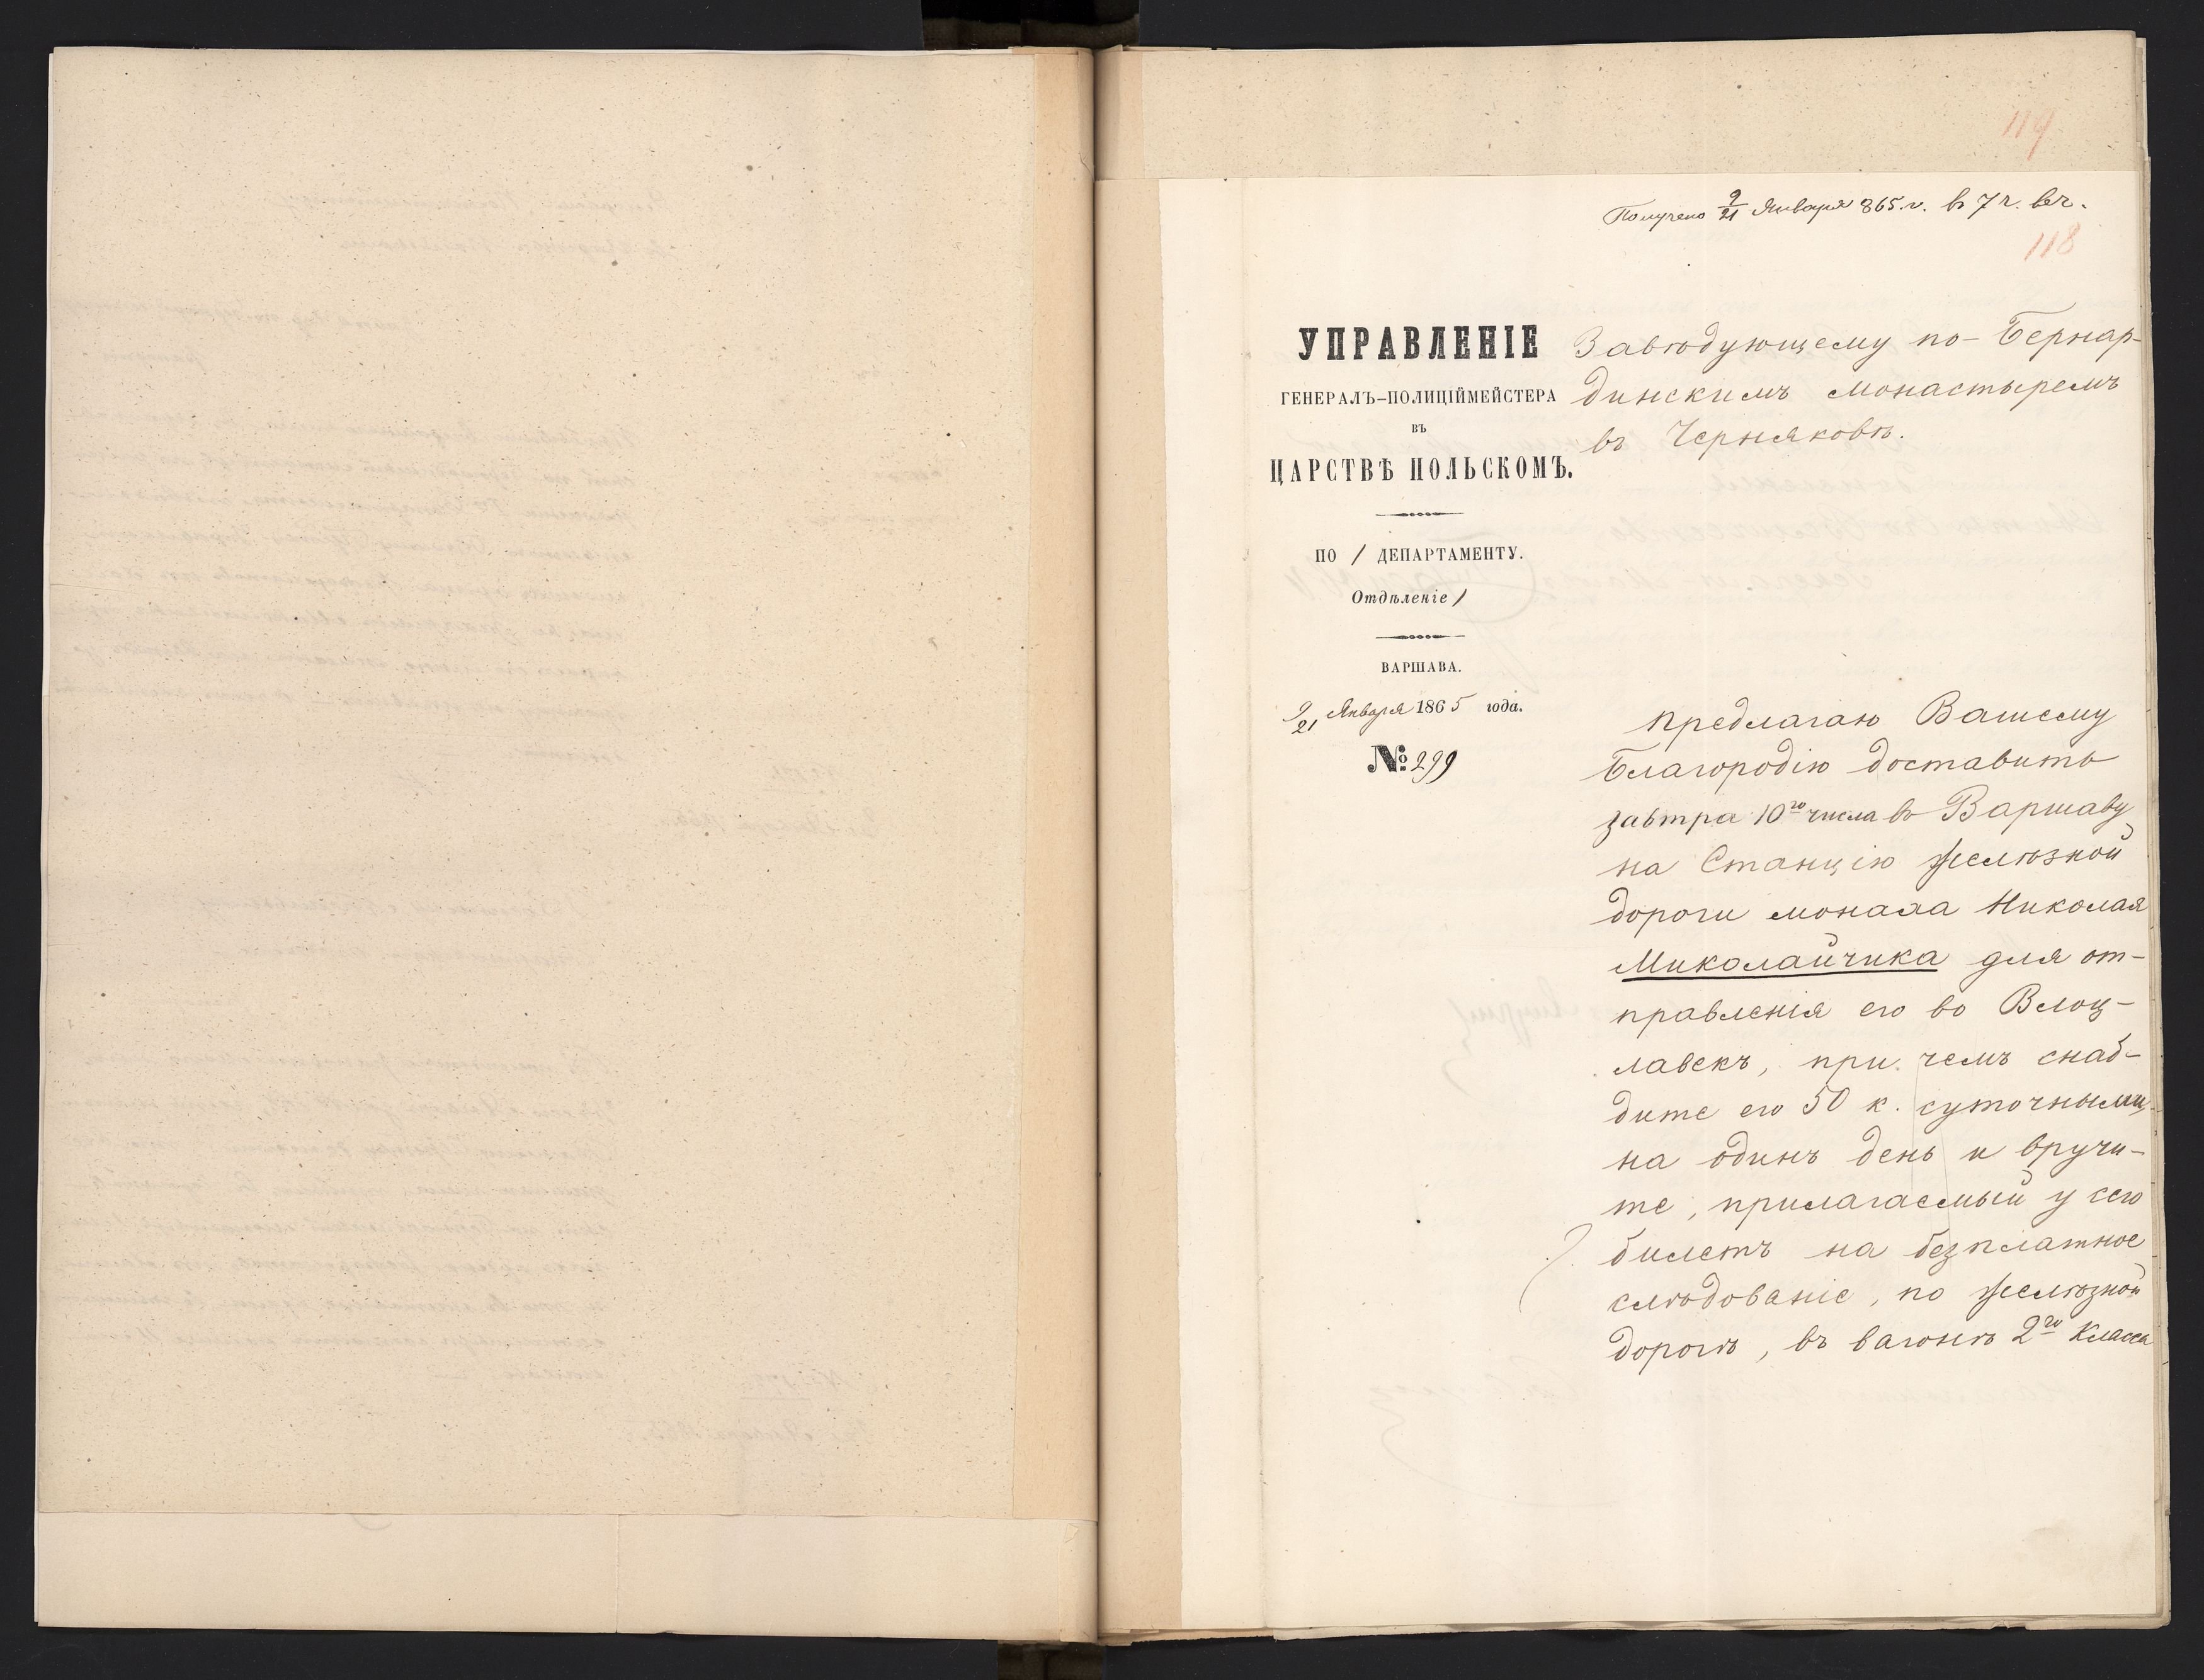 119
Получено 9/21 Января 865. г. в 7 ч. веч.
118
УПРАВЛЕНІЕ
ГЕНЕРАЛЪ-ПОЛИЦІЙМЕЙСТЕРА
ВЪ
ЦАРСТВѢ ПОЛЬСКОМЪ.
ПО 1 ДЕПАРТАМЕНТУ.
Отдѣленіе 1
ВАРШАВА.
9/21 Января 1865 года.
№ 299
Завѣдующему по-Бернар-
динскимъ монастыремъ
въ Черняковѣ.
предлагаю Вашему
Благородію доставить
завтра 10го числа в Варшаву
на Станцію желѣзной
дороги монаха Николая
Миколайчика для от-
правленія его во Влоц-
лавекъ, при чемъ снаб-
дите его 50 к. суточными,
на одинъ день и вручи-
те, прилагаемый у сего
билетъ на безплатное
слѣдованіе, по желѣзной
дорогѣ, въ вагонѣ 2го Класса